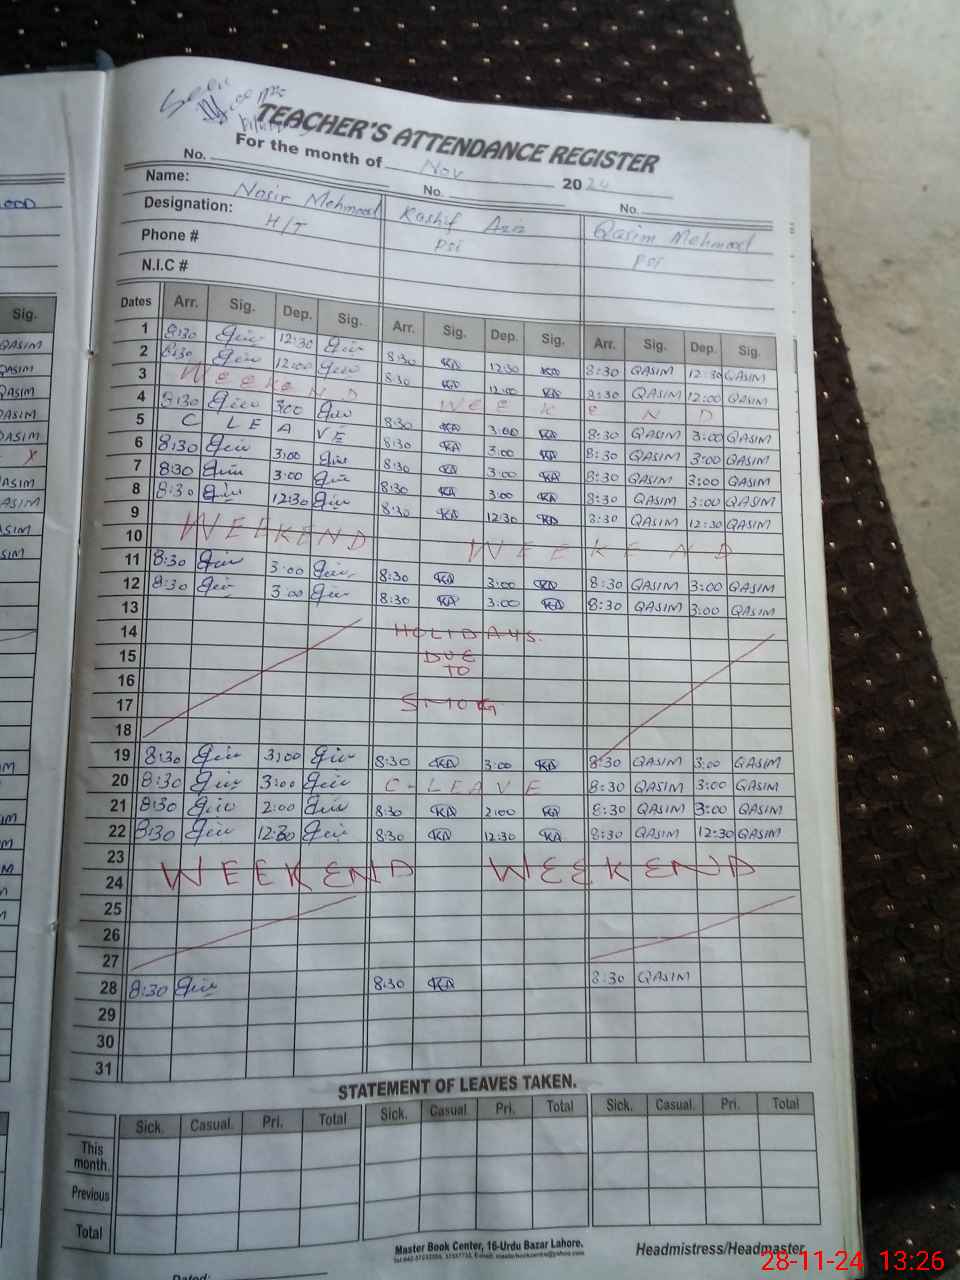 TEACHER'S ATTENDANCE REGISTER
For the month of Nov 2024
No. No. No.
Name: Nasir Mehmood Kashif Aziz Qasim Mehmood
Designation: H/T PST PST
Phone #
N.I.C #
Dates Arr. Sig. Dep. Sig. Arr. Sig. Dep. Sig. Arr. Sig. Dep. Sig.
1 8:30 12:30 8:30 KA 12:30 KA 8:30 QASIM 12:30 QASIM
2 8:30 12:00 8:30 KA 12:00 KA 8:30 QASIM 12:00 QASIM
3 WEEKEND WEEKEND
4 8:30 3:00 8:30 KA 3:00 KA 8:30 QASIM 3:00 QASIM
5 C LEAVE 8:30 KA 3:00 KA 8:30 QASIM 3:00 QASIM
6 8:30 3:00 8:30 KA 3:00 KA 8:30 QASIM 3:00 QASIM
7 8:30 3:00 8:30 KA 3:00 KA 8:30 QASIM 3:00 QASIM
8 8:30 12:30 8:30 KA 12:30 KA 8:30 QASIM 12:30 QASIM
9 WEEKEND WEEKEND
10
11 8:30 3:00 8:30 KA 3:00 KA 8:30 QASIM 3:00 QASIM
12 8:30 3:00 8:30 KA 3:00 KA 8:30 QASIM 3:00 QASIM
13
14 HOLIDAYS.
15 DUE
16 TO
17 SMOG
18
19 8:30 3:00 8:30 KA 3:00 KA 8:30 QASIM 3:00 QASIM
20 8:30 3:00 C-LEAVE 8:30 QASIM 3:00 QASIM
21 8:30 2:00 8:30 KA 2:00 KA 8:30 QASIM 3:00 QASIM
22 8:30 12:30 8:30 KA 12:30 KA 8:30 QASIM 12:30 QASIM
23 WEEKEND WEEKEND
24
25
26
27
28 8:30 8:30 KA 8:30 QASIM
29
30
31
STATEMENT OF LEAVES TAKEN.
Sick. Casual. Pri. Total Sick. Casual. Pri. Total Sick. Casual. Pri. Total
This month.
Previous
Total
Master Book Center, 16-Urdu Bazar Lahore.
Headmistress/Headmaster
Dated:
28-11-24 13:26
Sig.
QASIM
QASIM
QASIM